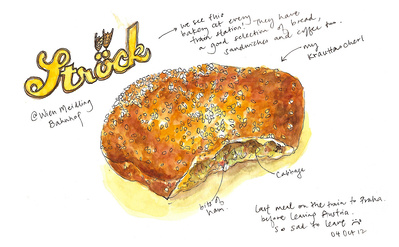 Ströck
→ we see this
bakery at every
train station! They have
a good selection of bread,
sandwiches and coffee too.
my
Krauttascherl
@ Wien Meidling
Bahnhof
bits of
ham.
Cabbage
Last meal on the train to Praha.
before leaving Austria.
so sad to leave
04 Oct 12